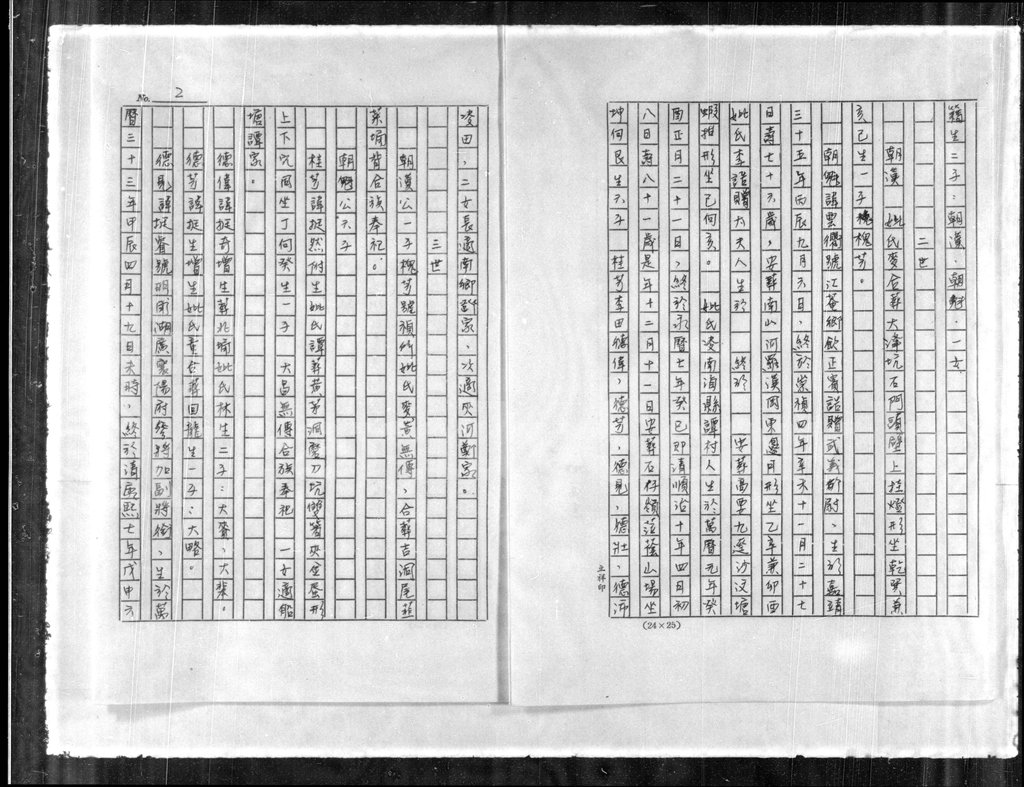 籍生二子：朝漢．朝魁．一女
二世
朝漢　妣氏麥合葬大降坑石阿頭壁上挂燈形坐乾巽兼
亥己生一子槐芳。
朝魁諱雲衢號江菴鄉飲正賓誥贈武義都尉、生於嘉靖
三十五年丙辰九月六日，終於崇禎四年辛未十一月二十七
日壽七十六歲，安葬南山河羅漢岡東邊月形坐乙辛兼卯酉
妣氏李誥贈大夫人生於　終於　安葬高要九逕沙汶塘
蝦推形坐己向亥。　妣氏凌南海縣譚村人生於萬曆元年癸
酉正月二十一日，終於永曆七年癸巳即清順治十年四月初
八日壽八十一歲是年十二月十一日安葬石仔嶺蓢山場坐
坤向艮生六子　桂芳李田德偉，德芳，德見，德壯，德沛
立祥印
(24×25)
No. 2
凌田，二女長適南鄉許家、次適夾河鄭家。
三世
朝漢公一子槐芳號禎所妣氏麥黃無傳，合葬吉洞尾韮
菜埇背合族奉祀。
朝魁公六子
桂芳諱挺然附生妣氏譚葬黃茅洞磨刀坑雙簪夾坐蛋形
上下穴岡坐丁向癸生一子　大昌無傳合族奉祀　一女適船
塘譚家。
德偉諱挺奇增生葬北埇妣氏林生二子：大賚，大棐。
德芳諱挺生增生妣氏黃合葬回龍生一子：大略。
德見諱挺睿號明周湖廣襄陽府參將加副將銜、生於萬
曆三十三年甲辰四月十九日未時，終於清康熙七年戊申六